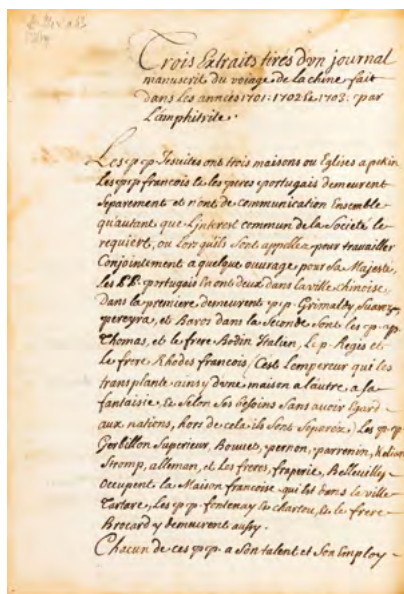 Trois Extraits tirés d'un journal
manuscrit du voiage de la chine fait
dans les années 1701: 1702 & 1703: par
L'amphitrite.
Les pp Jesuites ont trois maisons ou Eglises a pekin
Les pp françois & les peres portugais demeurent
Separement et n'ont de communication Ensemble
qu'autant que L'interest commun de la Societé le
requiert, ou Lors quils Sont appellez pour travailler
Conjointement a quelque ouvrage pour sa Majesté,
Les RR. portugais En ont deux dans la ville chinoise,
Dans la premiere demeurent pp. Grimaldy, Suarez,
pereyra, et Baros dans la Seconde Sont les pp
Thomas, et le frere Bodin Italien, Le p. Regis et
Le frere Rhodes francois (C'est L'empereur qui les
transplante ainsy d'une maison a L'autre a sa
fantaisie, & Selon Ses besoins Sans avoir Egard
aux nations, hors de cela ils Sont Separez) Les pp
Gerbillon Superieur, Bouvet, pernon, parrenin,
Stomp, alleman, et Les freres, fraperie, Belleville,
occupent la Maison francoise qui Est dans la ville
Tartare, Les pp. fontenay & chartou, & le frere
Brocard y demeurent aussy.
Chacun de ces pp. a Son talent et Son Employ